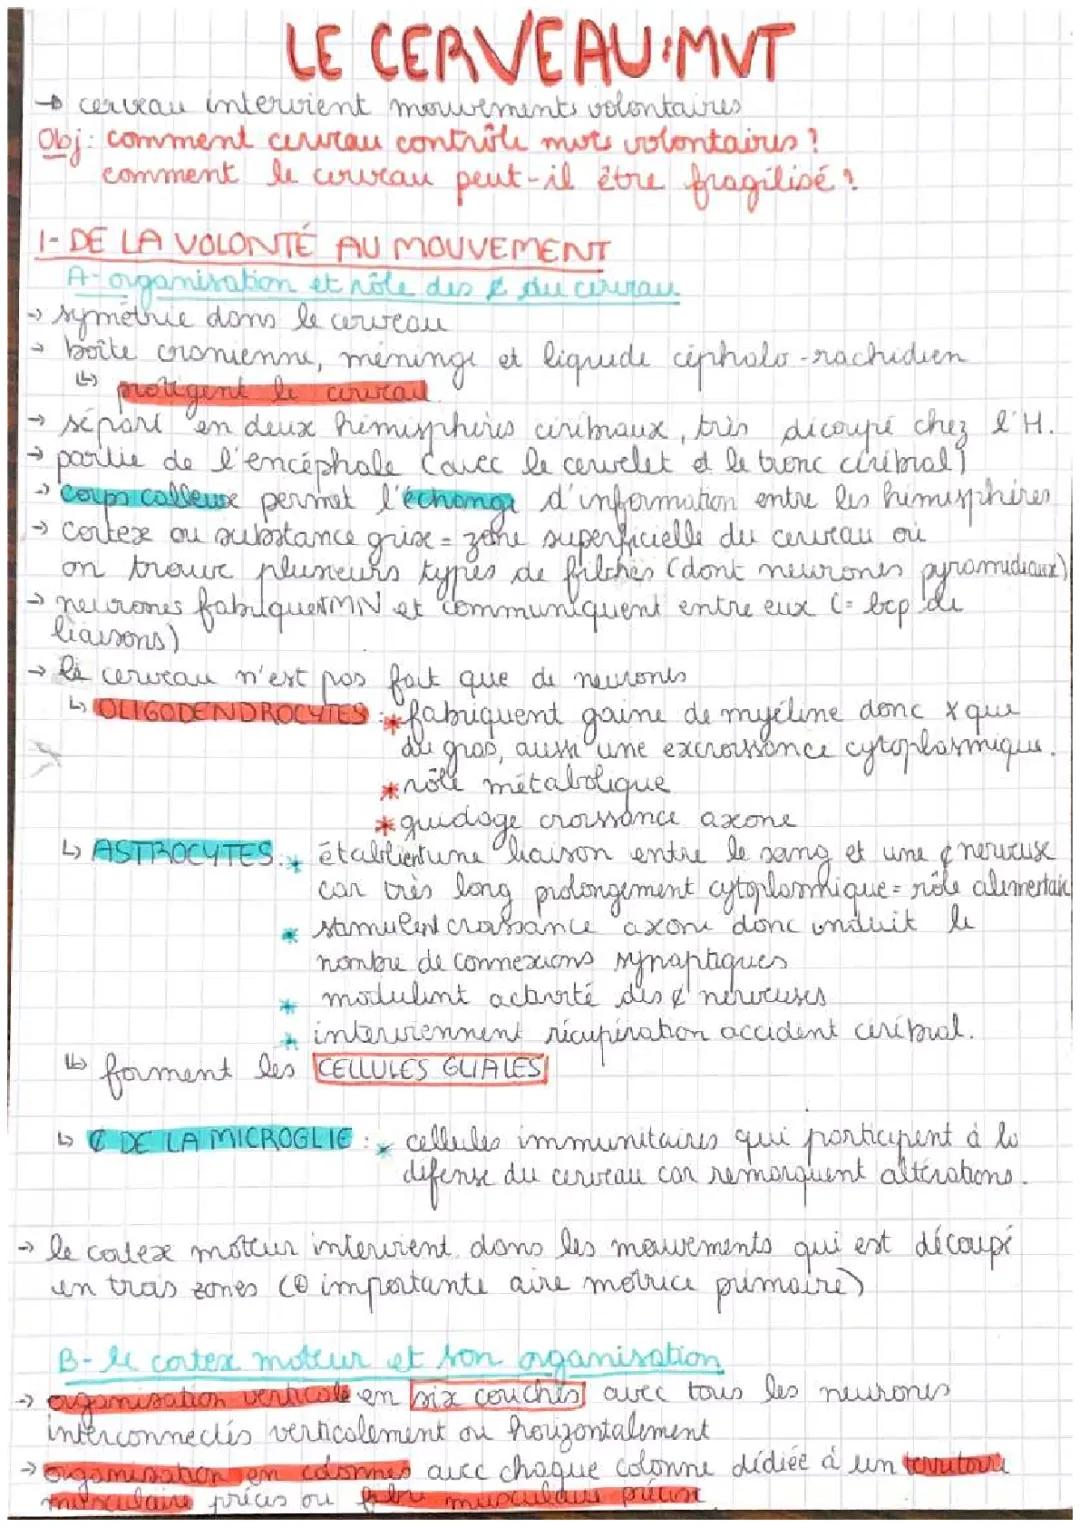 LE CERVEAU : MVT
→ cerveau intervient mouvements volontaires
Obj : comment cerveau contrôle mvts volontaires ?
comment le cerveau peut-il être fragilisé ?
1- DE LA VOLONTÉ AU MOUVEMENT
A- organisation et rôle des ¢ du cerveau
→ symétrie dans le cerveau
→ boîte cranienne, méninge et liquide céphalo-rachidien
↳ protègent le cerveau
→ séparé en deux hémisphères cérébraux, très découpé chez l'H.
→ partie de l'encéphale (avec le cervelet et le tronc cérébral)
→ corps calleux permet l'échange d'information entre les hémisphères
→ cortex ou substance grise = zone superficielle du cerveau où
on trouve plusieurs types de (dont neurones pyramidaux)
→ neurones fabriquent MN et communiquent entre eux (= bcp de
liaisons)
→ le cerveau n'est pas fait que de neurones
↳ OLIGODENDROCYTES : * fabriquent gaine de myéline donc x que
du gras, aussi une excroissance cytoplasmique.
* rôle métabolique
* guidage croissance axone
↳ ASTROCYTES : * établient une liaison entre le sang et une ¢ nerveuse
car très long prolongement cytoplasmique = rôle alimentaire
* stimulent croissance axone donc induit le
nombre de connexions synaptiques
* modulent activité des ¢ nerveuses
* interviennent récupération accident cérébral.
↳ forment les CELLULES GLIALES
↳ ¢ DE LA MICROGLIE : * cellules immunitaires qui participent à la
défense du cerveau car remarquent altérations.
→ le cortex moteur intervient dans les mouvements qui est découpé
en trois zones (⊕ importante aire motrice primaire)
B- le cortex moteur et son organisation
→ organisation verticale en six couches avec tous les neurones
interconnectés verticalement ou horizontalement
→ organisation en colonnes avec chaque colonne dédiée à un territoire
musculaire précis ou fibre musculaire précise